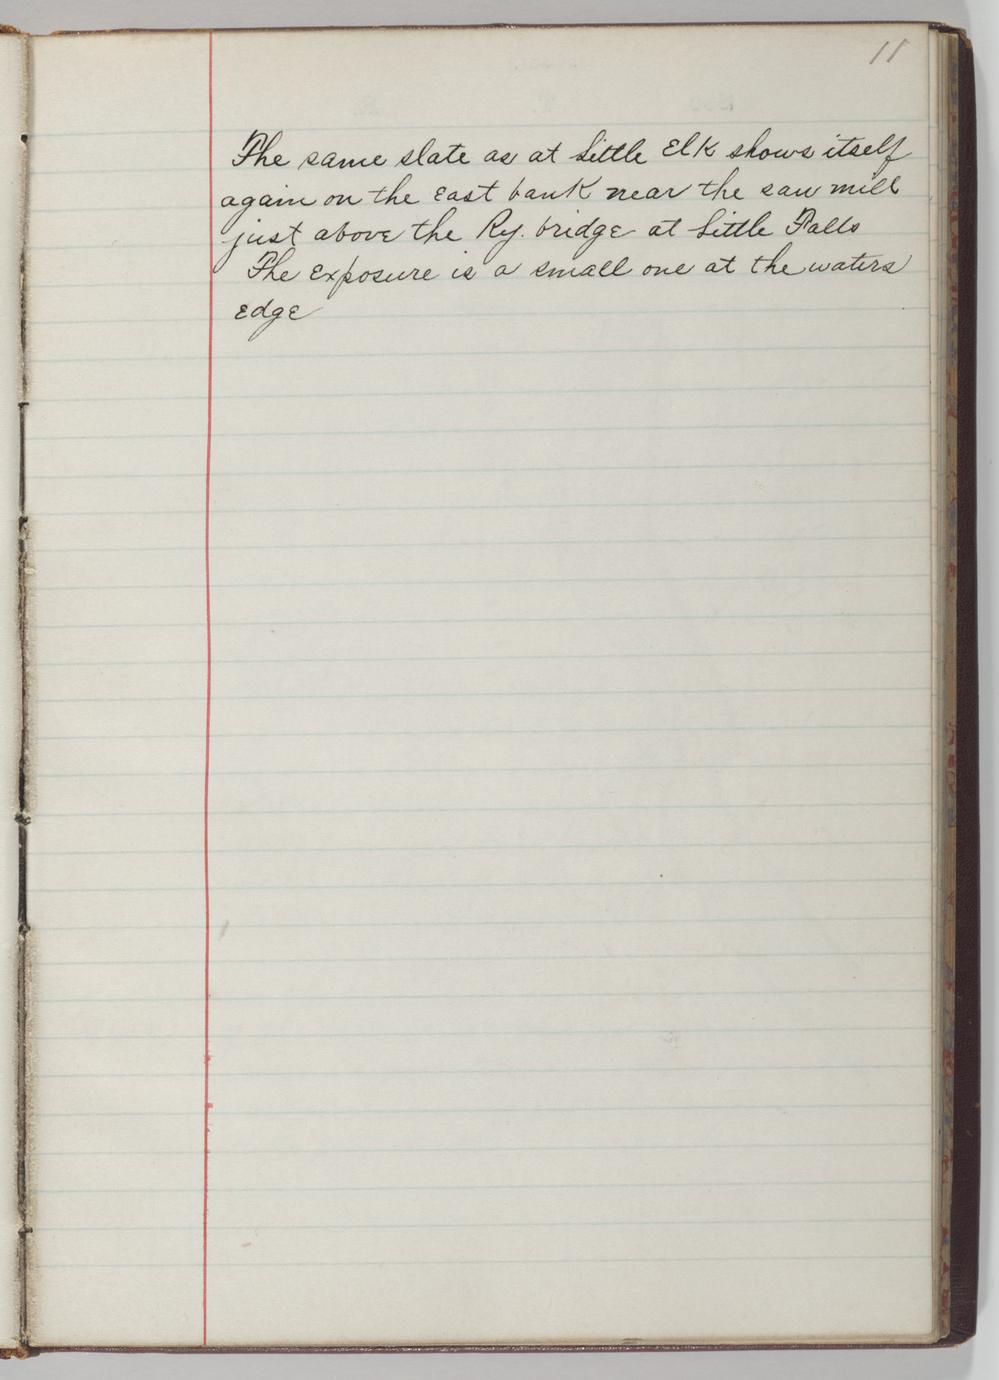 11
The same slate as at Little Elk shows itself
again on the East bank near the saw mill
just above the Ry. bridge at Little Falls
The Exposure is a small one at the waters
Edge